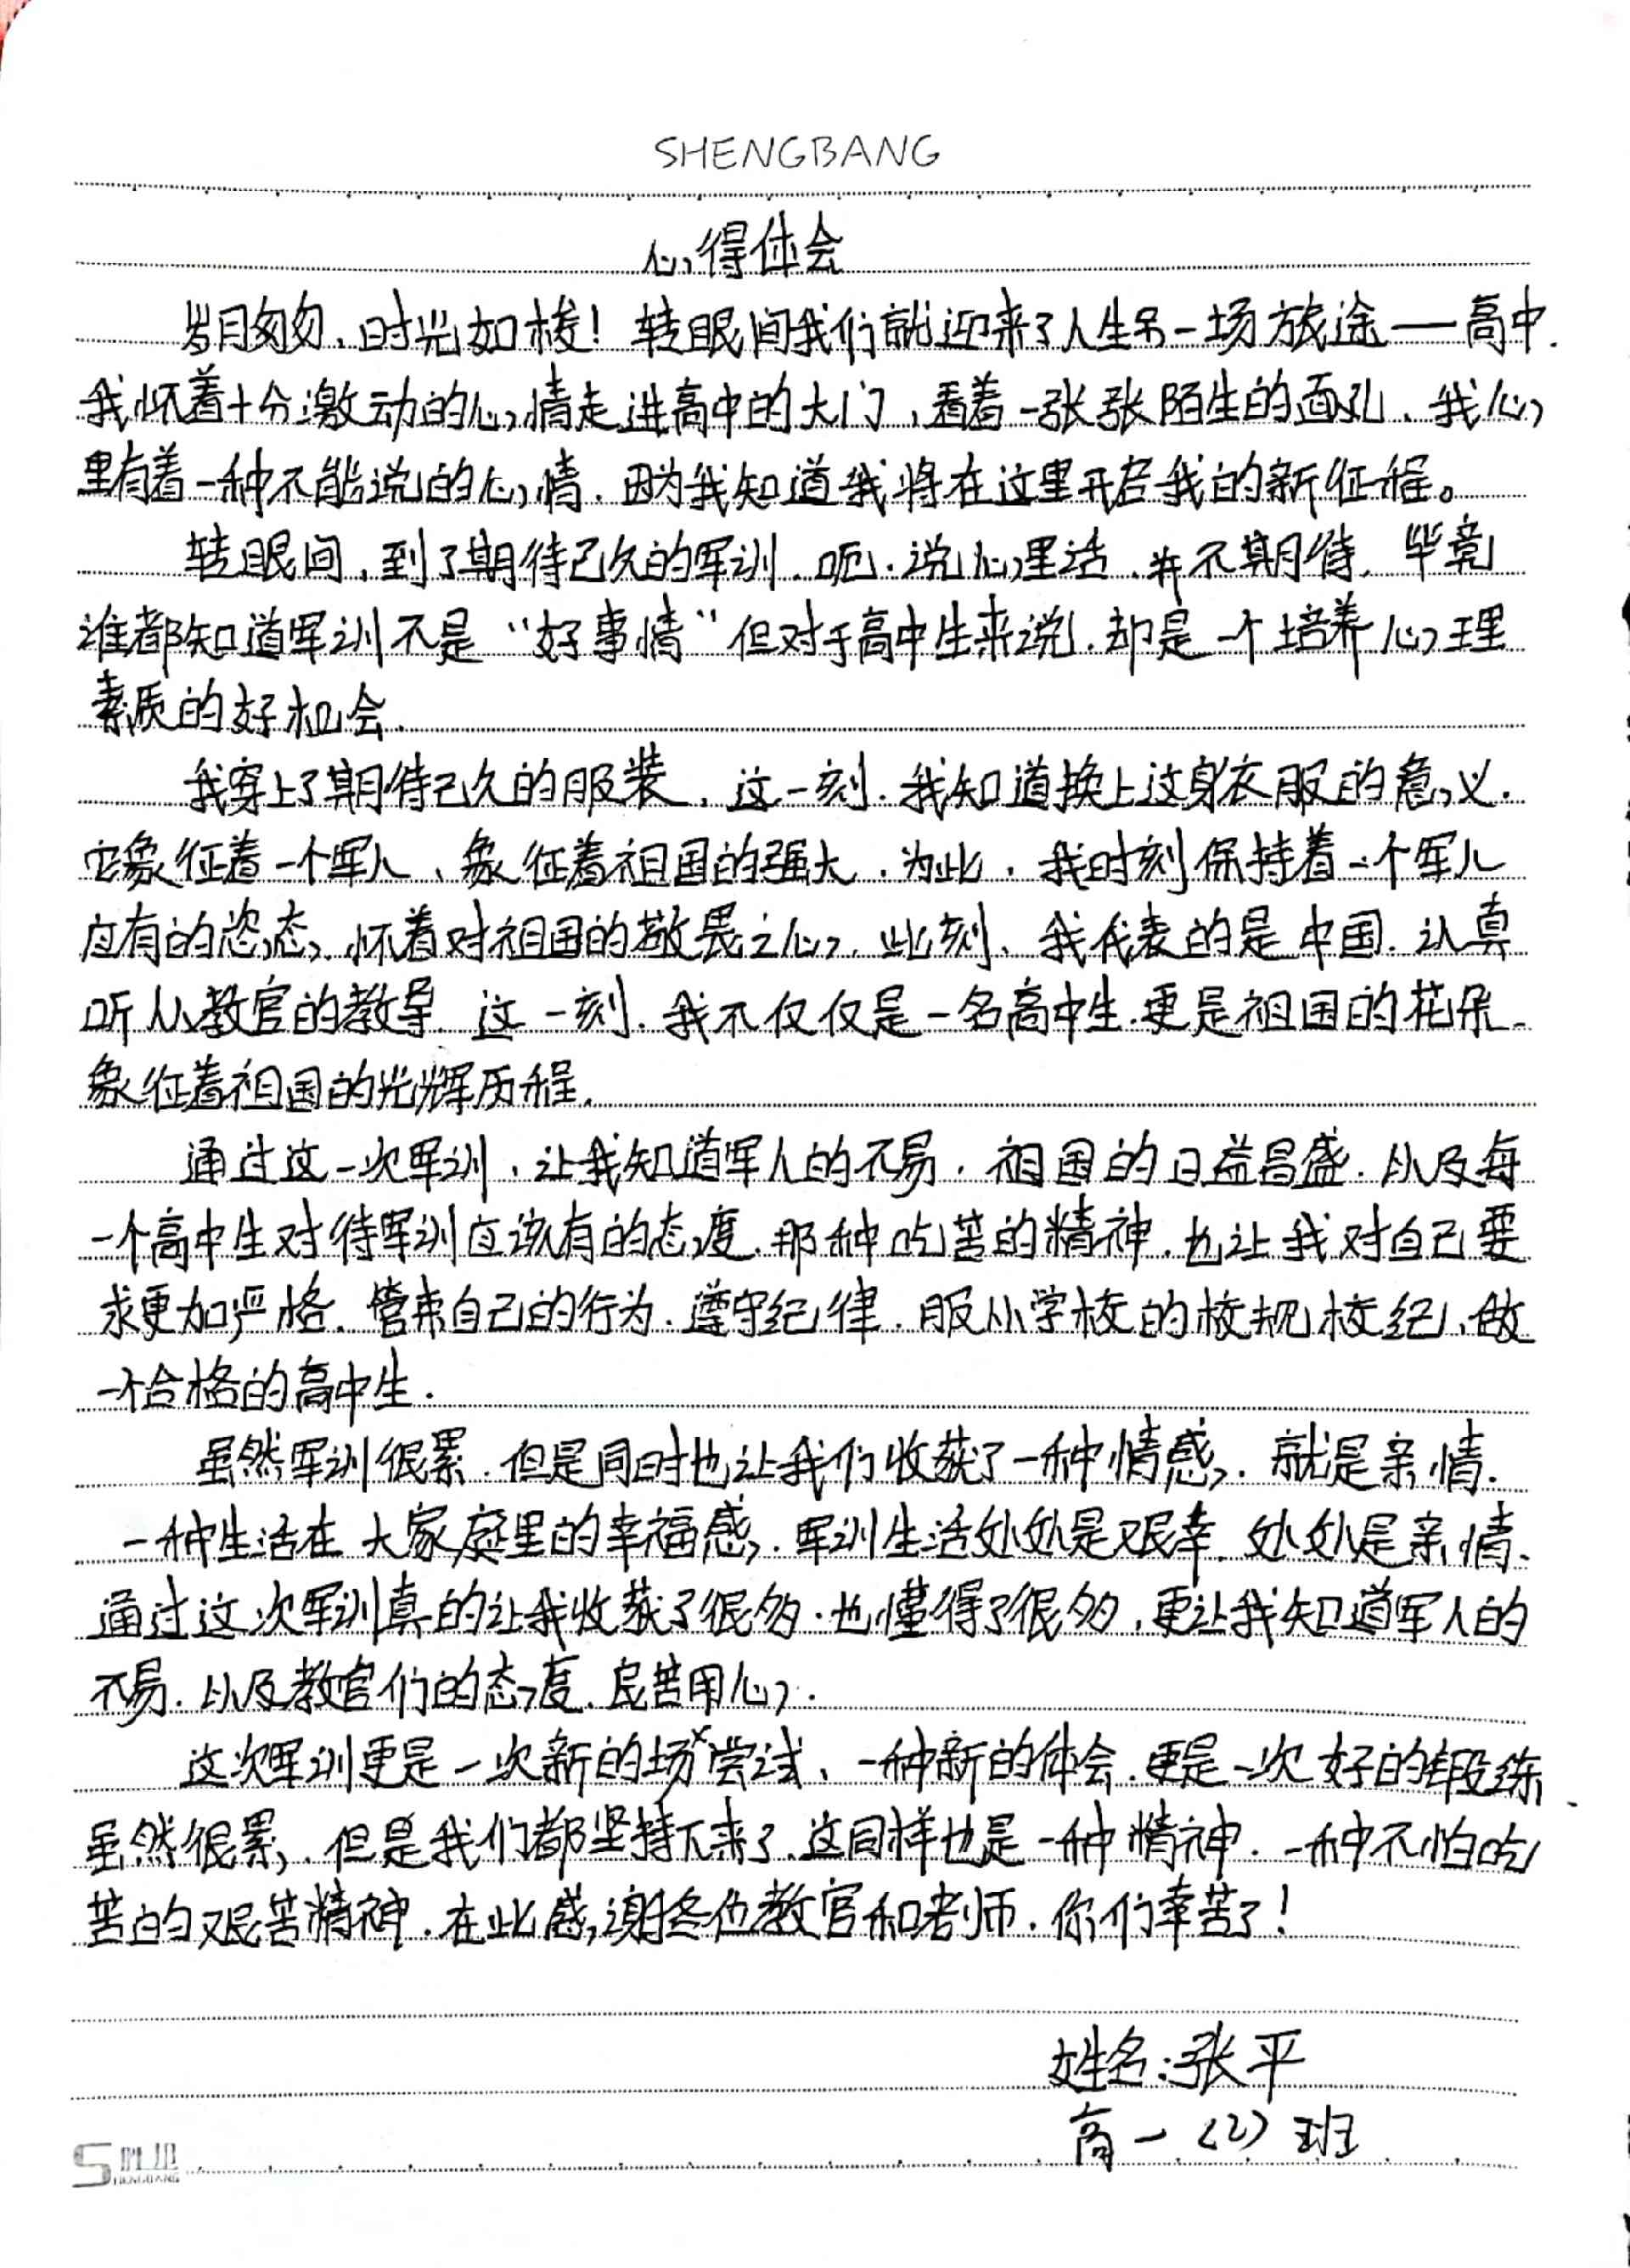 SHENGBANG
心得体会
岁月匆匆，时光如梭！转眼间我们就迎来了人生另一场旅途——高中．
我怀着十分激动的心情走进高中的大门，看着一张张陌生的面孔、我心
里有着一种不能说的心情．因为我知道我将在这里开启我的新征程。
转眼间，到了期待已久的军训．呃．说心里话．并不期待．毕竟
谁都知道军训不是“好事情”但对于高中生来说．却是一个培养心理
素质的好机会．
我穿上了期待已久的服装．这一刻．我知道换上这身衣服的意义．
它象征着一个军人、象征着祖国的强大．为此．我时刻保持着一个军人
应有的姿态，怀着对祖国的敬畏之心，此刻、我代表的是中国．认真
听从教官的教导．这一刻．我不仅仅是一名高中生．更是祖国的花朵．
象征着祖国的光辉历程．
通过这一次军训、让我知道军人的不易．祖国的日益昌盛．以及每
一个高中生对待军训应该有的态度．那种吃苦的精神．也让我对自己要
求更加严格．管束自己的行为．遵守纪律．服从学校的校规校纪、做
一个合格的高中生．
虽然军训很累．但是同时也让我们收获了一种情感，就是亲情．
一种生活在大家庭里的幸福感，军训生活处处是艰辛．处处是亲情、
通过这次军训真的让我收获了很多．也懂得了很多，更让我知道军人的
不易．以及教官们的态度．良苦用心．
这次军训更是一次新的场尝试、一种新的体会．更是一次好的锻练．
虽然很累，但是我们都坚持下来了．这同样也是一种精神．一种不怕吃
苦的艰苦精神．在此感谢各位教官和老师．你们辛苦了！
姓名：张平
高一（2）班
S 胜邦
SHENGBANG